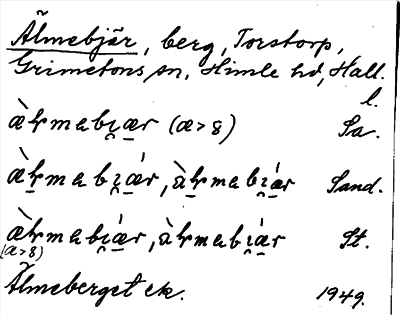 Älmebjär, berg, Torstorp,
Grimetons sn, Himle hd, Hall.
l.
æ̀ɫmabi̯ær (æ>8) Sa.
æ̀ɫmabi̯ǽr, àɫmabi̯ár Sand.
æ̀ɫmabi̯ǽr, àɫmabi̯ár St.
(æ>8)
Älmeberget ek. 1949.